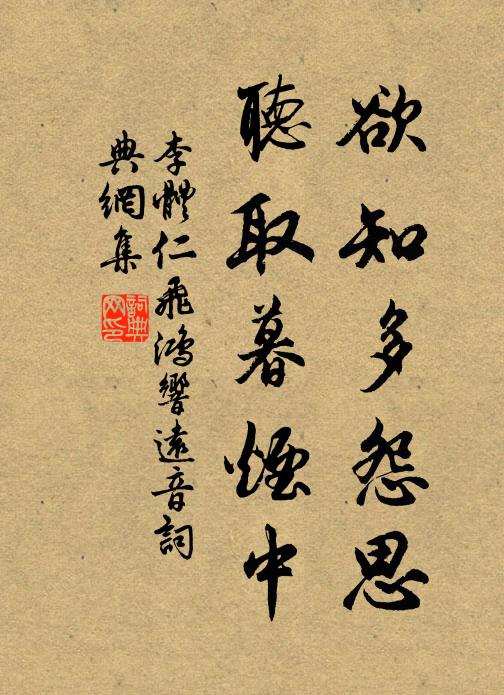 欲知多怨思
聽取暮煙中
李體仁飛鴻響遠音詞
典網集
詞典
网印